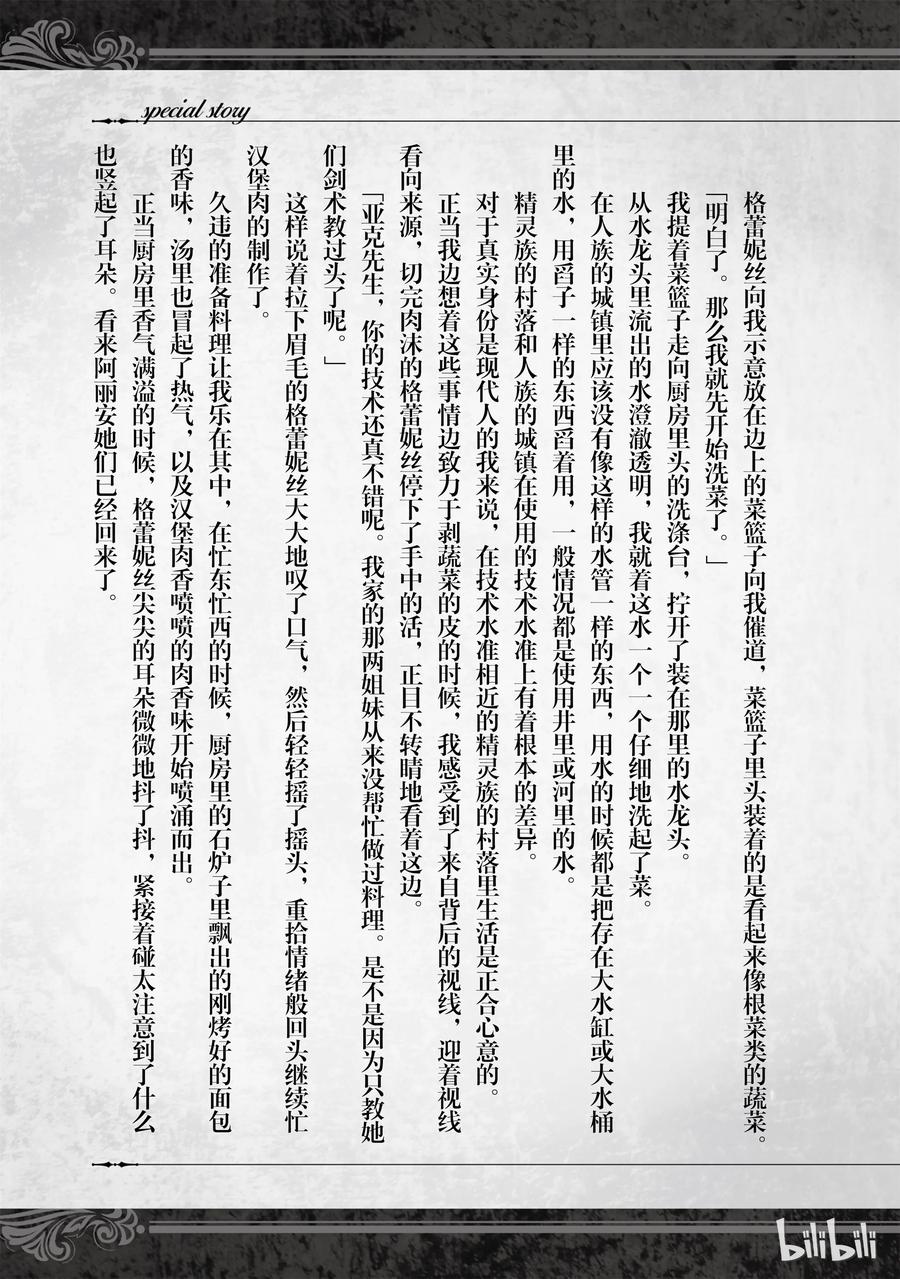 special story
格蕾妮丝向我示意放在边上的菜篮子向我催道，菜篮子里头装着的是看起来像根菜类的蔬菜。
「明白了。那么我就先开始洗菜了。」
我提着菜篮子走向厨房里头的洗涤台，拧开了装在那里的水龙头。
从水龙头里流出的水澄澈透明，我就着这水一个一个仔细地洗起了菜。
在人族的城镇里应该没有像这样的水管一样的东西，用水的时候都是把存在大水缸或大水桶
里的水，用舀子一样的东西舀着用，一般情况都是使用井里或河里的水。
精灵族的村落和人族的城镇在使用的技术水准上有着根本的差异。
对于真实身份是现代人的我来说，在技术水准相近的精灵族的村落里生活是正合心意的。
正当我边想着这些事情边致力于剥蔬菜的皮的时候，我感受到了来自背后的视线，迎着视线
看向来源，切完肉沫的格蕾妮丝停下了手中的活，正目不转睛地看着这边。
「亚克先生，你的技术还真不错呢。我家的那两姐妹从来没帮忙做过料理。是不是因为只教她
们剑术教过头了呢。」
这样说着拉下眉毛的格蕾妮丝大大地叹了口气，然后轻轻摇了摇头，重拾情绪般回头继续忙
汉堡肉的制作了。
久违的准备料理让我乐在其中，在忙东忙西的时候，厨房里的石炉子里飘出的刚烤好的面包
的香味，汤里也冒起了热气，以及汉堡肉香喷喷的肉香味开始喷涌而出。
正当厨房里香气满溢的时候，格蕾妮丝尖尖的耳朵微微地抖了抖，紧接着碰太注意到了什么
也竖起了耳朵。看来阿丽安她们已经回来了。
bilibili